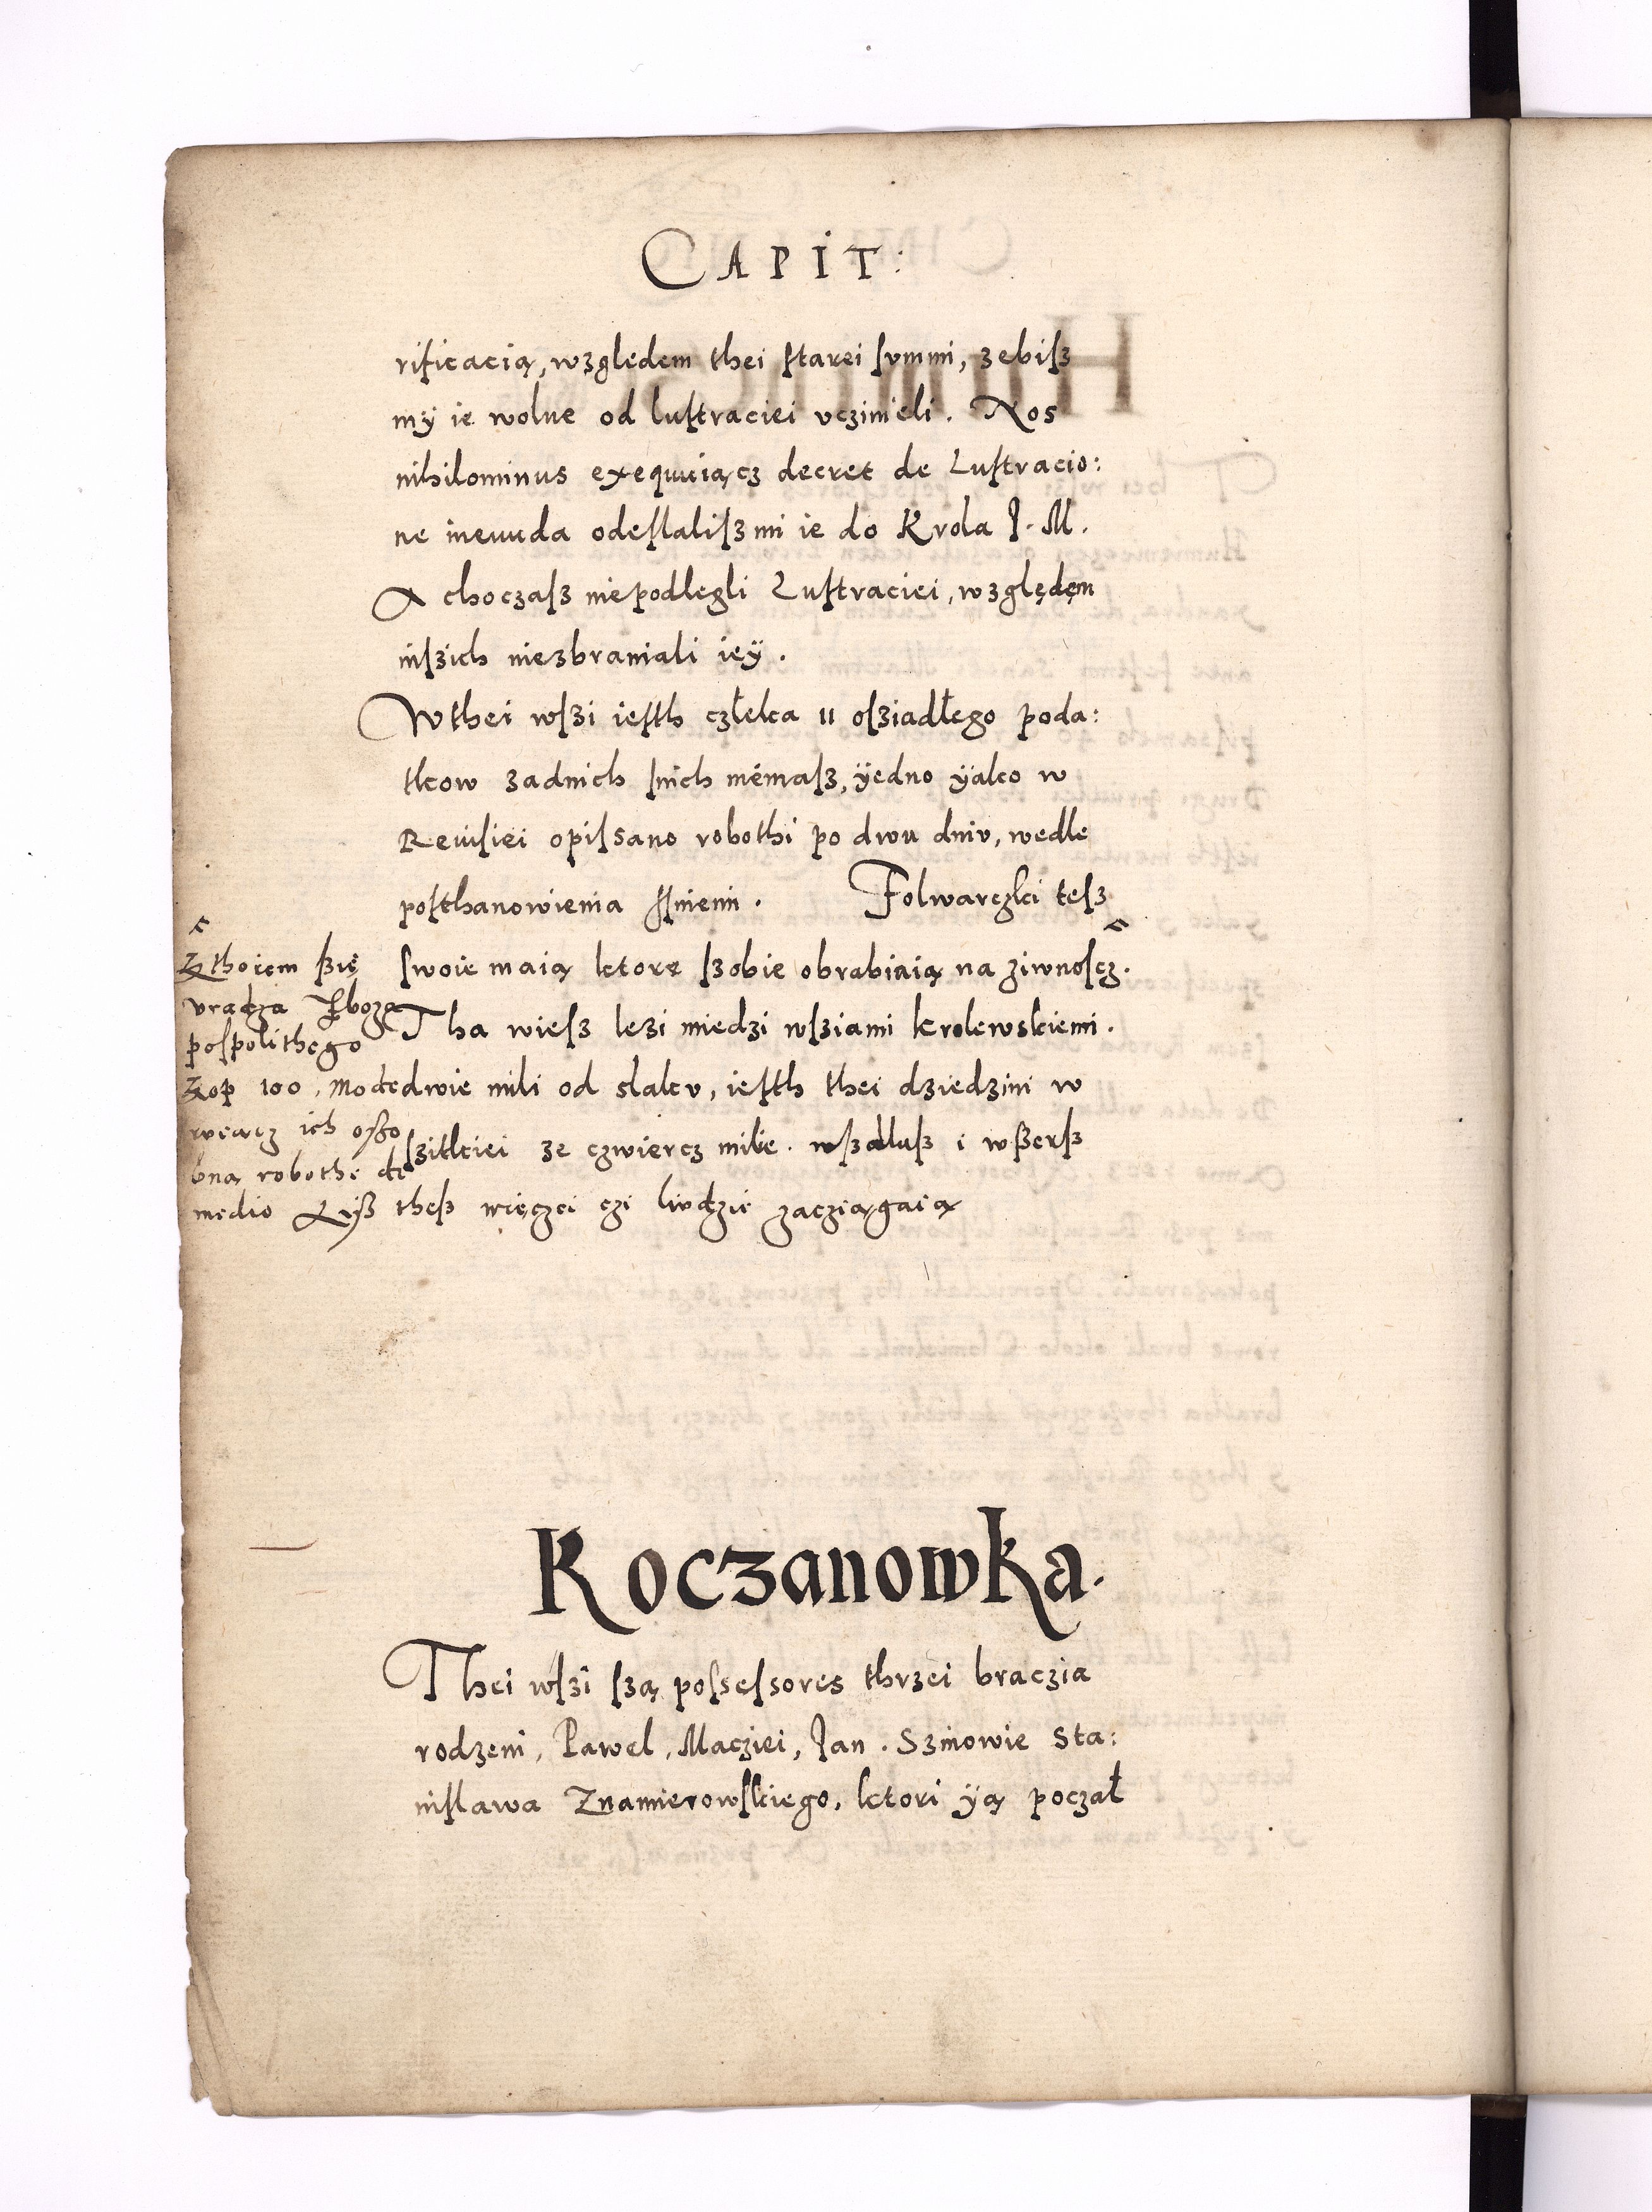 CAPIT:
rificacią, wzgledem thei ſtarei ſvmmi, zebiſz
mÿ ie wolne od luſtraciei vczinieli. Nos
nihilominus exequuiącz decret de Luſtracio:
ne ineuuda odeſlaliſz mi ie do Krola J. M.
A choczaſz niepodlegli Luſtraciei, względęm
inſzich niezbraniali ieÿ.
Wthei wſzi ieſth człeka 11 oſziadłego poda:
tkow zadnich ſnich niemaſz, ÿedno ÿako w
Reuiſiei opiſsano robothi po dwu dniv, wedle
poſthanowienia ſſniemi. Folwarczki teſz
ſwoie maią ktore ſzobie obrabiaią na ziwnoſcz.
Tha wieſz lezi miedzi wſziami krolewskiemi.
dwie mili od skaly, ieſth thei dziedzini w
ſzitkiei ze czwiercz milie. wſzdluſz i wſzerſz
Zthoiem ſzię
vradza Zboza
poſpolithego
Kop 100, Mode
rviącz ich oſſo
bną robothę de
medio Kiſz theſz więczei czi liudzie zacziągaią
Roczanowka.
Thei wſzi ſzą poſseſsores thrzei braczia
rodzeni, Pawel, Macziei, Jan. Szinowie Sta:
niſlawa Znamierowſkiego, ktori ÿą poczał